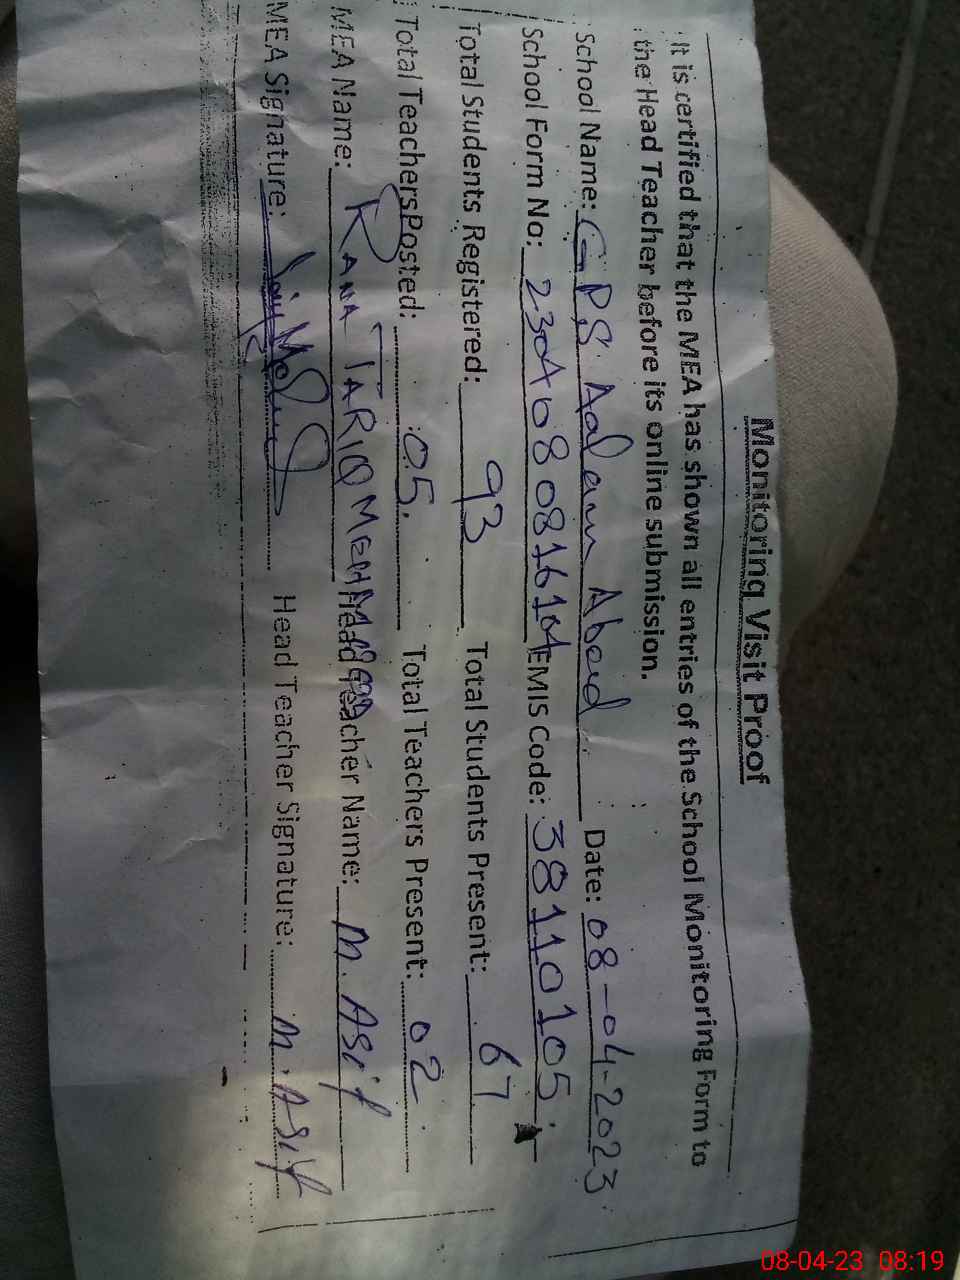 Monitoring Visit Proof
It is certified that the MEA has shown all entries of the School Monitoring Form to
the Head Teacher before its online submission.
School Name: GPS Aalam Abad Date: 08-04-2023
School Form No: EMIS Code: 38110105
Total Students Registered: 93 Total Students Present: 67
Total Teachers Posted: 05. Total Teachers Present: 02
MEA Name: RANA TARIQ MEHMOOD Head Teacher Name: M. Asif
MEA Signature: Head Teacher Signature: M. Asif
08-04-23 08:19